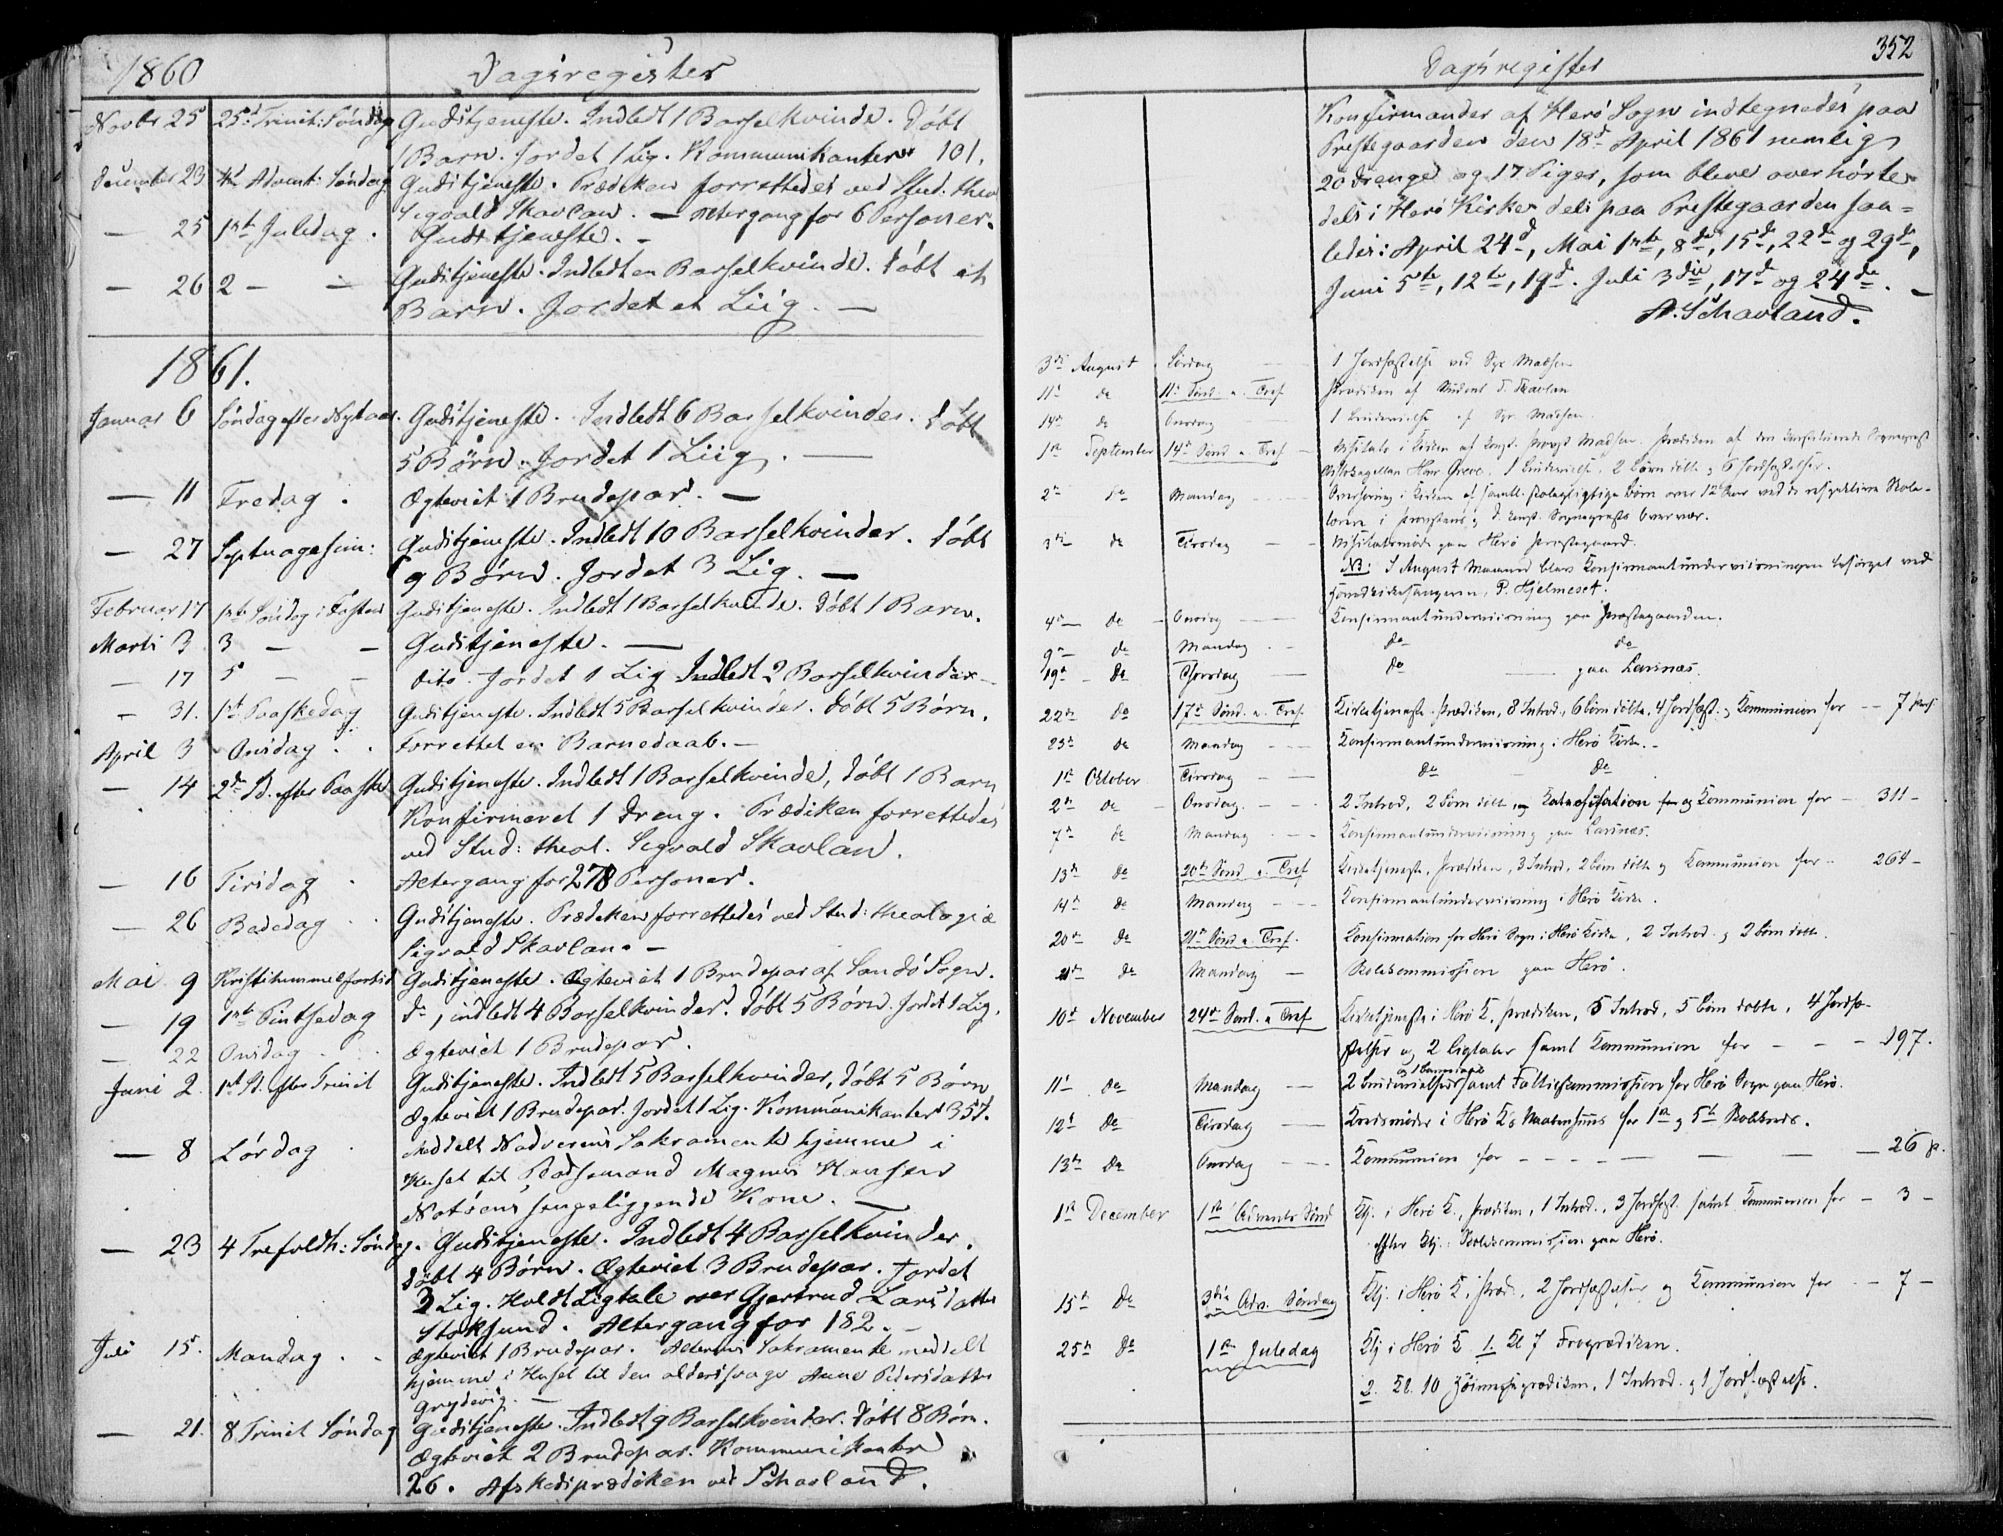 1860 Dagsregister
Novbr 25 25d: Trinit: Søndag Gudstjeneste. Indledt 1 Barselkvinde. Døbt
1 Barn. Jordet 1 Lig. Kommunikanter 101.
December 23 4de Advent: Søndag Gudstjeneste. Prædiken forrettedes ved Stud: theol
Sigvald Skavlan. — Altergang for 6 Personer.
— 25 1ste Juledag. Gudstjeneste. —
— 26 2 — — Gudstjeneste. Indledt en Barselkvinde. Døbt et
Barn. Jordet et Liig. —
1861.
Januar 6 Søndag efter Nytaar. Gudstjeneste. Indledt 6 Barselkvinder. Døbt
5 Børn. Jordet 1 Liig. —
— 11 Fredag. Ægteviet 1 Brudepar. —
— 27 Septuagesim: Gudstjeneste. Indledt 10 Barselkvinder. Døbt
9 Børn. Jordet 3 Lig. —
Februar 17 1ste Søndag i Fasten Gudstjeneste. Indledt 1 Barselkvinde. Døbt 1 Barn.
Marts 3 3 — — Gudstjeneste. —
— 17 5 — — Dito. Jordet 1 Lig Indledt 2 Barselkvinder —
— 31. 1ste Paaskedag Gudstjeneste. Indledt 5 Barselkvinder. Døbt 5 Børn.
April 3 Onsdag . . Forrettet en Barnedaab. —
— 14 2den S. efter Paaske Gudstjeneste. Indledt 1 Barselkvinde, Døbt 1 Barn
Konfirmeret 1 Dreng. Prædiken forrettedes
ved Stud: theol. Sigvald Skavlan.
— 16 Tirsdag . Altergang for 278 Personer.
— 26 Bededag . . Gudstjeneste. Prædiken forrettedes ved Stud: theologiæ
Sigvald Skavlan. —
Mai 9 Kristihimmelfartsd Gudstjeneste. Ægteviet 1 Brudepar af Sandø Sogn.
— 19 1ste Pintsedag do, indledt 4 Barselkvinder. Døbt 5 Børn. Jordet 1 Lig.
— 22 Onsdag . . Ægteviet 1 Brudepar.
Juni 2. 1ste S. efter Trinit Gudstjeneste. Indledt 5 Barselkvinder, Døbt 5 Børn
Ægteviet 1 Brudepar. Jordet 1 Lig. Kommunikanter 357.
— 8 Lørdag . Meddelt Nadverens Sakramente hjemme i
Huset til Magnus Hansen
sengeliggende Kone. —
— 23 4 Trefoldh: Søndag. Gudstjeneste. Indledt 4 Barselkvinder.
Døbt 4 Børn. Ægteviet 3 Brudepar. Jordet
3 Lig. Holdt Ligtale over Gjertrud Larsdatter
Stoksund. Altergang for 182. —
Juli 15. Mandag . . Ægteviet 1 Brudepar. Alterens Sakramente meddelt
hjemme i Huset til den aldersvage Anne Pedersdatter
Grydevig. —
— 21. 8 Trinit Søndag Gudstjeneste. Indledt 9 Barselkvinder. Døbt 8 Børn.
Ægteviet 2 Brudepar. Kommunikanter
26. Afskedsprædiken ved Schavland.
Dagsregister 352
Konfirmander af Herø Sogn indtegnedes paa
Prestegaarden den 18d April 1861 nemlig
20 Drenge og 17 Piger, som bleve overhørte
dels i Herø Kirke dels paa Prestegaarden saa-
ledes: April 24d, Mai 1ste, 8de, 15de, 22de og 29de,
Juni 5te, 12te, 19de. Juli 3die, 17de og 24de. —
A. Schavland.
3die August Lørdag — 1 Jordfæstelse ved Sgr Madsen
11te do 11te Sønd. e. Tref. Prædiken af Student S. Skavlan
14de do Onsdag — 1 Brudevielse af Sgr. Madsen.
1ste September 14de Sønd e. Tref. — Visitats i Kirken af Const. Provst Madsen. Prædiken af den konstituerede Sognepræst
Greve. 1 Brudevielse, 2 Børn døbte og 6 Jordfæstelser.
2den do Mandag — Overhøring i Kirken af samtl. skolepligtige Børn over 12 Aar ved de respektive Skole-
lærere i Provstens og d. const. Sognepræsts Overvær.
3die do Tirsdag — Visitatsmøde paa Herø Prestegaard.
NB: I August Maaned blev Konfirmantunderviisningen besørget ved
Hovedkirkesangeren, P. Hjelmeset.
4de do Onsdag — Konfirmantunderviisning paa Præstegaarden.
9de do Mandag — do do
19de do Thorsdag — do — paa Larsnæs.
22de do 17de Sønd. e. Tref. Kirketjeneste. Prædiken, 8 Introd, 6 børn døbte, 4 Jordfæst. og Kommunion for — 7 Pers
23de do Mandag — Konfirmantunderviisning i Herø Kirke. —
1ste October Tirsdag — do — do
2den do Onsdag. — 2 Introd, 2 Børn døbt, og Katechisation og Kommunion for — 311 —
7de do Mandag — Konfirmantunderviisning paa Larsnæs.
13de do 20de Sønd e. Tref Kirketjeneste, Prædiken, 3 Introd, 2 Børn døbte og Kommunion for — 264 —
14de do Mandag — Konfirmantunderviisning i Herø Kirke.
20de do 21de Sønd e. Tref. Konfirmation for Herø Sogn i Herø Kirke, 2 Introd. og 2 børn døbte.
21de do Mandag — Skolekommission paa Herø.
10de November 24de Sønd. e Tref Kirketjeneste i Herø K, Prædiken, 5 Introd, 5 børn døbte, 4 Jordfæ-
stelser og 2 Ligtaler samt Kommunion for — — 197.
11te do Mandag — 2 Brudevielser samt Fattigkommission for Herø Sogn paa Herø.
12te do Tirsdag — Kredsmøder i Herø K. for 1ste og 5te Skolkreds.
13de do Onsdag — Kommunion for — — — 26 p.
1ste December 1ste Advents Sønd Ktj. i Herø K., Prædiken, 1 Introd., 3 Jordfæst. samt Kommunion for — 3 —
efter Ktj. Skolekommission paa Herø.
15de do 3die Adv. Søndag Ktj. i Herø K, Præd., 2 Jordfæstelser og Kommunion for — 7 —
25de do 1ste Juledag Ktj i Herø K 1. Kl 7 Froprædiken.
2. Kl. 10 Høimesseprædiken, 1 Introd. og 1 Jordfæstelse.